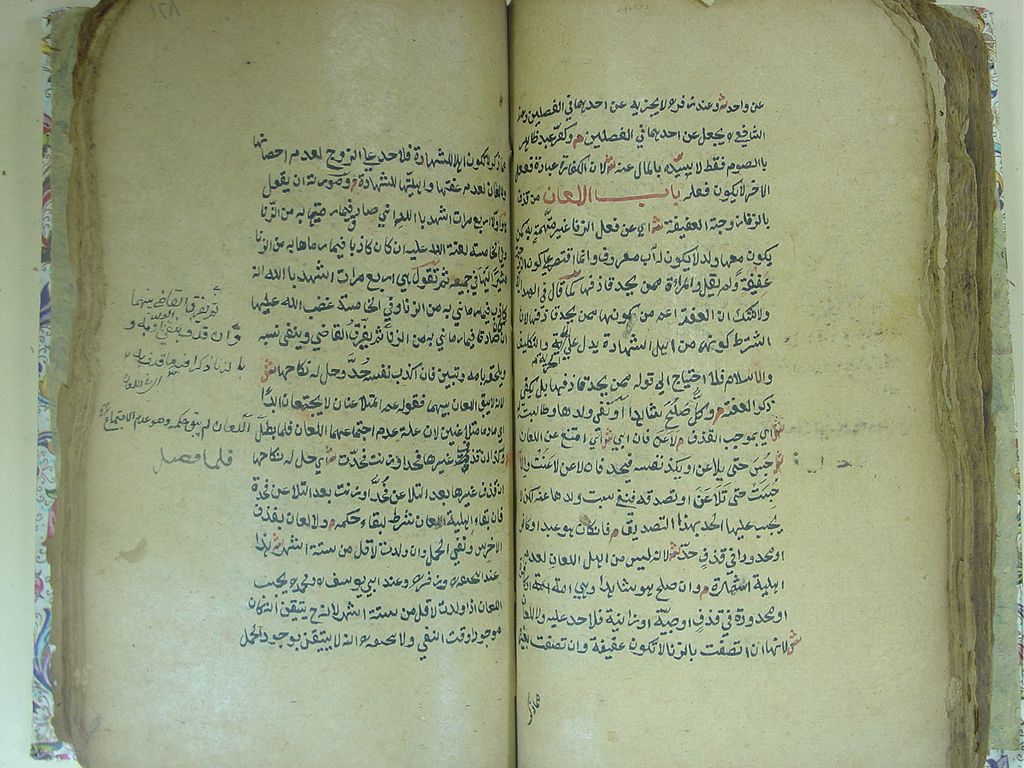 عن واحد ش وعند زفر لا يجزيه عن احدهما في الفصلين وعند
الشافعي يجعل عن احدهما في الفصلين م وكفر عبد ظاهر
بالصوم فقط لا سيده بالمال عنه ش لان الكفارة عبادة ففعل
الاخر لا يكون فعله باب اللعان من قذف
بالزنا زوجته العفيفة ش اي عن فعل الزنا غير متهمة به كمن
يكون معها ولد لا يكون له اب معروف وانما اقتصر على كون
عفيفة ولم يقل والمرأة ممن يحد قاذفها كما قال في الهداية
ولا شك ان العفة اعم من كونها ممن يحد قاذفها لان
الشرط كونهما من اهل الشهادة يدل على الحرية والتكليف
والاسلام فلا احتياج الى قوله ممن يحد قاذفها بل يكفي
ذكر العفة م وكل صلح شاهدا او نفى ولدها وطالبت به
ش اي بموجب القذف م لاعن فان ابى ش اي امتنع عن اللعان
م حبس حتى يلاعن او يكذب نفسه فيحد فان لاعن لاعنت والا
حبست حتى تلاعن او تصدقه فينفى نسب ولدها عنه لكن لا
يجب عليها الحد بهذا التصديق م فان كان هو عبدا او كافرا
او محدودا في قذف حد ش لانه ليس من اهل اللعان لعدم
اهلية الشهادة م وان صلح هو شاهدا وهي امة او كافرة
او محدودة في قذف او صبية او زانية فلا حد عليه ولا لعان
ش لانها ان اتصفت بالزنا لا تكون عفيفة وان اتصفت بغير
لا تكون اهلا للشهادة فلا حد على الزوج لعدم احصانها
ولا لعان لعدم عفتها واهليتها للشهادة م وصورته ان يقول
هو اولا اربع مرات اشهد بالله اني صادق فيما رميتها به من الزنا
وفي الخامسة لعنة الله عليه ان كان كاذبا فيما رماها به من الزنا
مشيرا اليها في جميعه ثم تقول هي اربع مرات اشهد بالله انه
كاذب فيما رماني به من الزنا وفي الخامسة غضب الله عليها
ان كان صادقا فيما رماني به من الزنا ثم يفرق القاضي وينفي نسبه
ويلحقه بامه وتبين فان اكذب نفسه حد وحل له نكاحها ش
لانه لا يبقى اللعان بينهما فقوله عم المتلاعنان لا يجتمعان ابدا
اي ما داما متلاعنين لان علة عدم اجتماعهما اللعان فلما بطل
م وكذا ان قذف غيرها فحد او زنت فحدت ش اي حل له نكاحها
ان قذف غيرها بعد التلاعن فحد او زنت بعد التلاعن فحدت
فان بقاء اهلية اللعان شرط بقاء حكمه م ولا لعان بقذف
الاخرس ونفي الحمل وان ولدت لاقل من ستة اشهر ش هذا
عند ابي حنيفة وزفر وعند ابي يوسف ومحمد يجب
اللعان اذا ولدت لاقل من ستة اشهر لانه ح يتيقن انه كان
موجودا وقت النفي ولابي حنيفة انه لا يتيقن بوجود الحمل
١٢٨
ثم يفرق القاضي بينهما
اللعان لم يبق حكمه وهو عدم الاجتماع